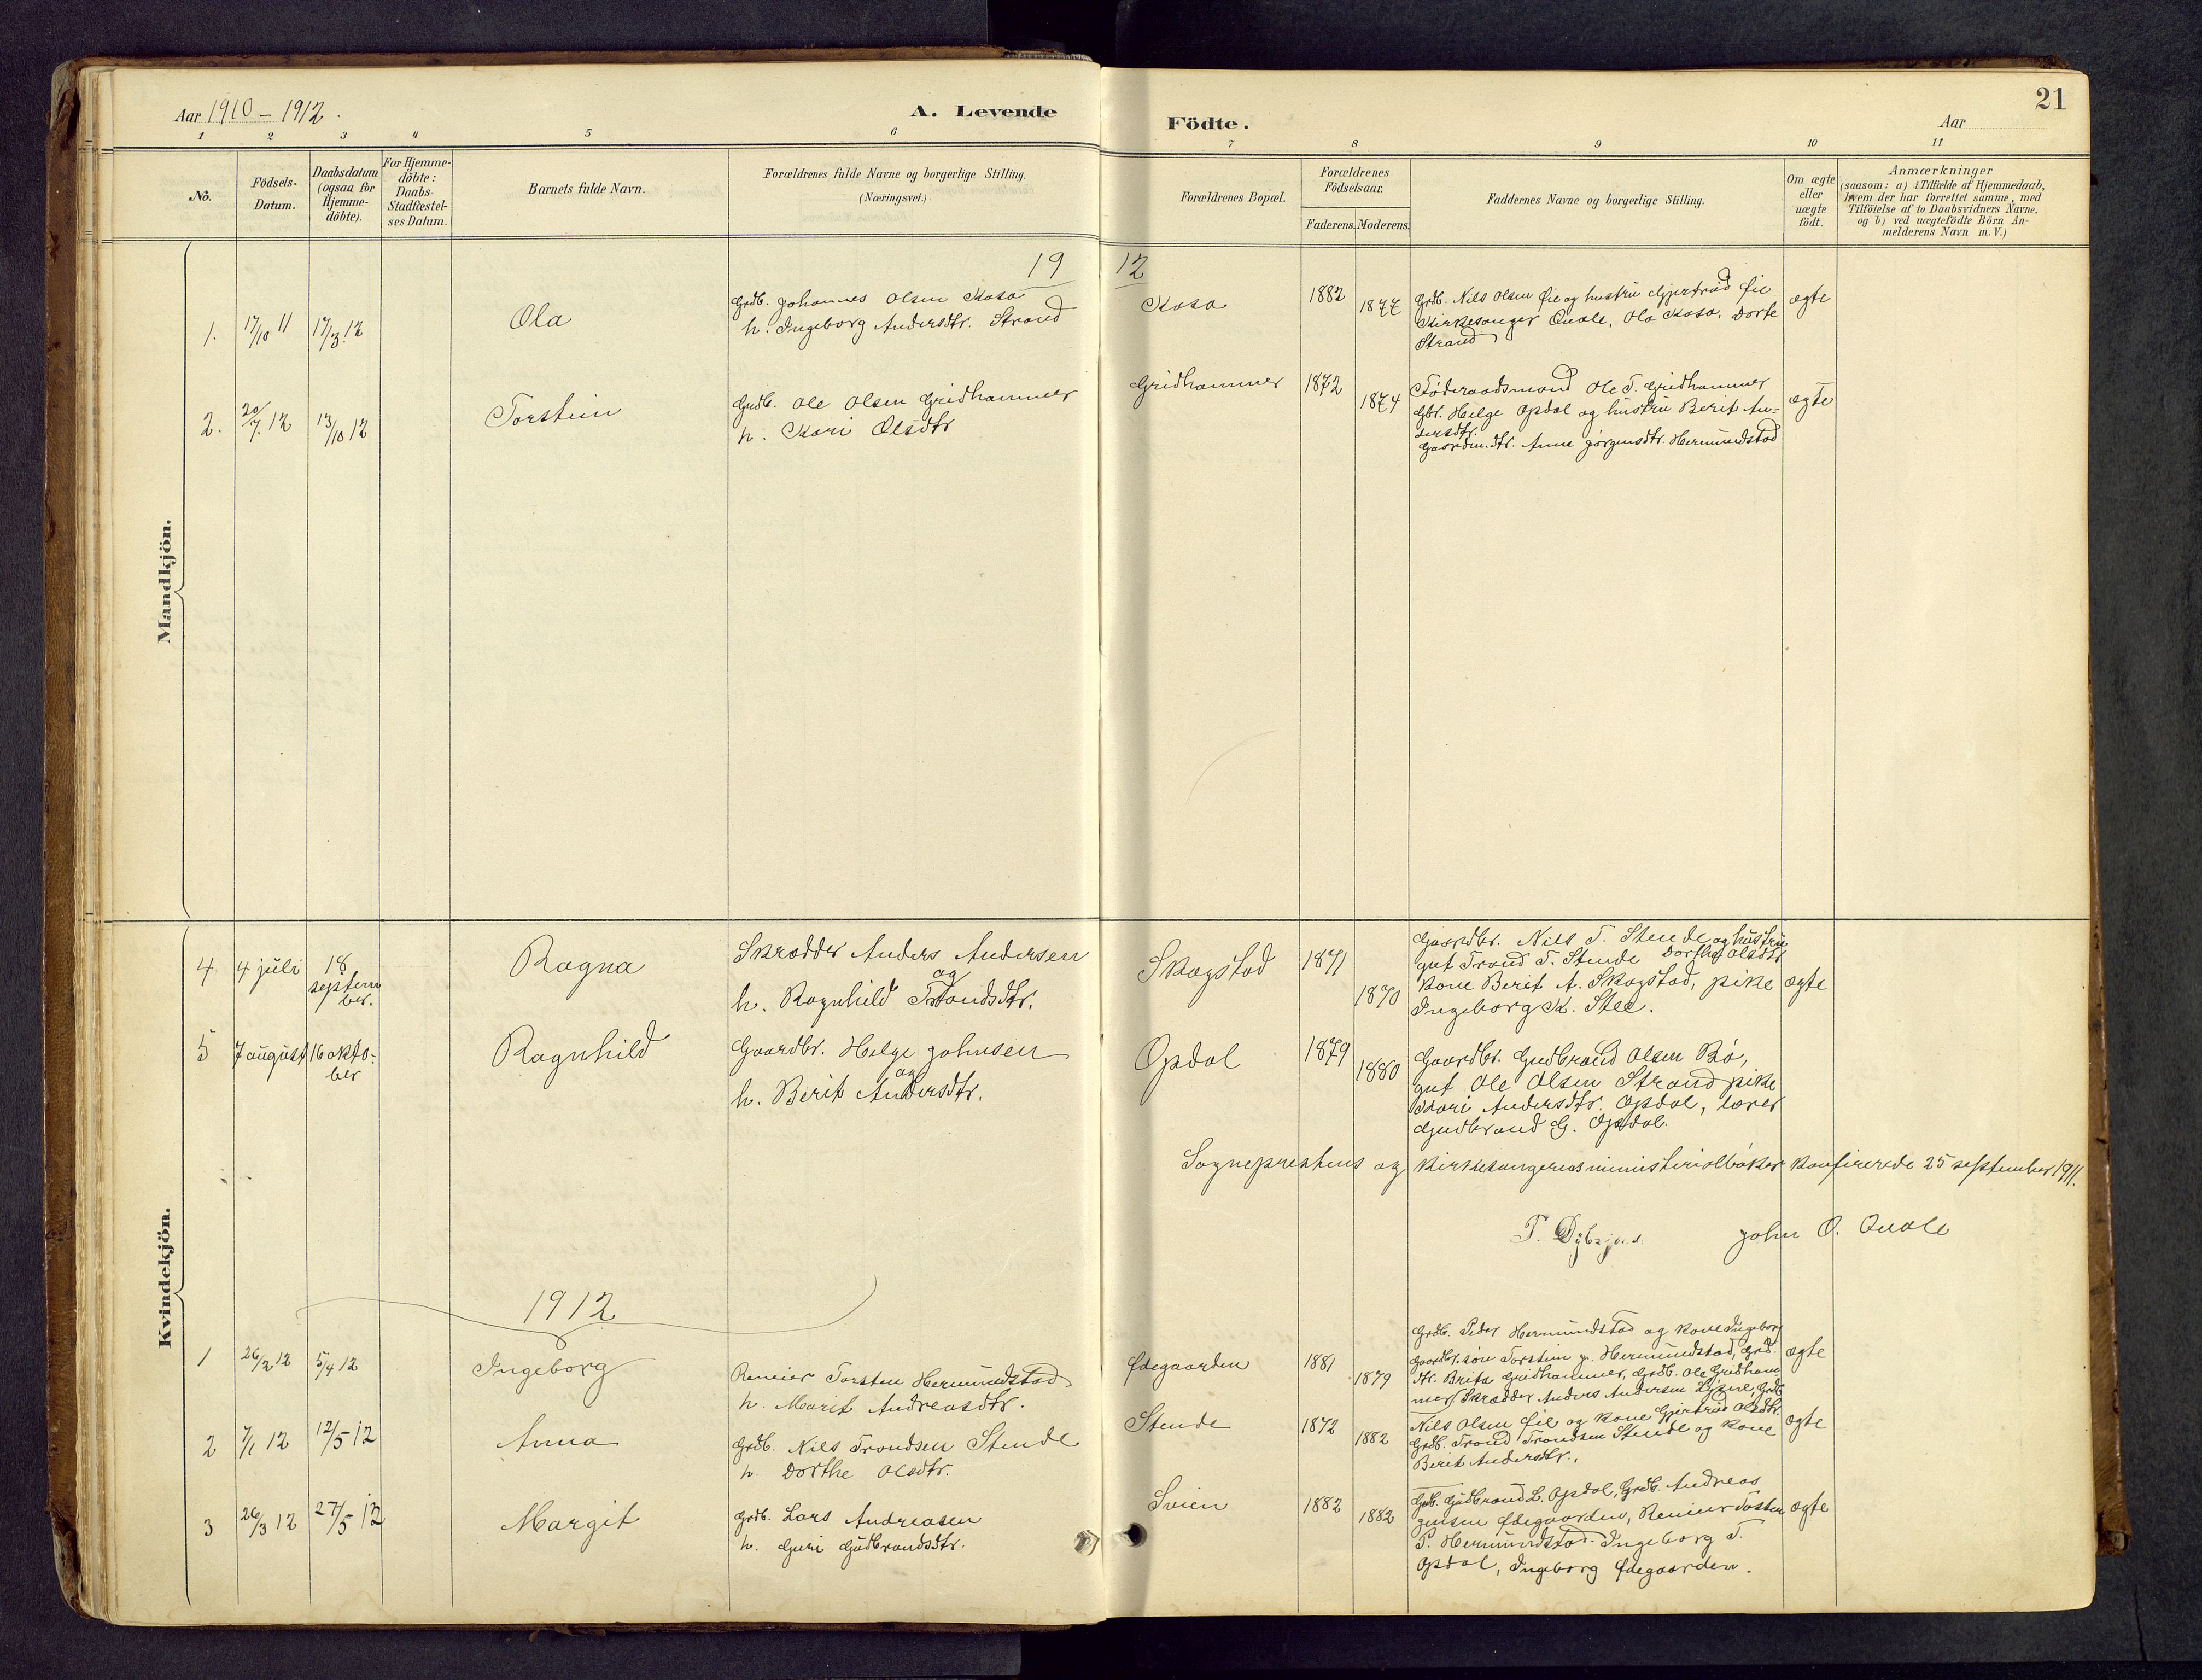 21
Aar 1910 - 1912.
A. Levende Födte.
Aar
1 2 3 4 5 6 7 8 9 10 11
No.
Födsels-Datum.
Daabsdatum (ogsaa for Hjemme-döbte).
For Hjemme-döbte: Daabs-Stadfæstel-ses Datum.
Barnets fulde Navn.
Forældrenes fulde Navne og borgerlige Stilling.
(Næringsvei.)
Forældrenes Bopæl.
Forældrenes Födselsaar.
Faderens. Moderens.
Faddernes Navne og borgerlige Stilling.
Om ægte eller uægte födt.
Anmærkninger
(saasom: a) i Tilfælde af Hjemmedaab,
hvem der har forrettet samme, med
Tilföielse af to Daabsvidners Navne,
og b) ved uægtefödte Börn An-
melderens Navn m. V.)
Mandkjön.
19 12
1. 17/10 11 17/3 12 Ola
Grdb. Johannes Olsen Kasa
h. Ingeborg Andersdtr. Strand
Kasa 1882 1877
Grdb. Nils Olsen Øie og hustru Gjertrud Øie
Kirkesanger Quale, Ola Kasa, Dorte
Strand
ægte
2. 20/7 12 13/10 12 Torstein
Grdb. Ole Olsen Gridhammer
h. Kari Olsdtr
Gridhammer 1872 1874
Føderaadsmand Ole T. Gridhammer
Gbr. Helge Opdal og hustru Berit An-
dersdtr.
Gaardm.dtr. Anne Jørgensdtr. Hermundstad
ægte
Kvindekjön.
4 4 juli 18 septem ber. Ragna
Skrædder Anders Andersen
og
h. Ragnhild Trondsdtr.
Skagstad 1871 1870
Gaardbr. Nils T. Stende og hustru
gut Trond T. Stende Dorthe Olsdtr
kone Berit A. Skagstad, pike
Ingeborg K. Stee.
ægte
5 7 august 16 okto-ber Ragnhild
Gaardbr. Helge Johnsen
og
h. Berit Andersdtr.
Opdal 1879 1880
Gaardbr. Gudbrand Olsen Bø,
gut Ole Olsen Strand pike
Kari Andersdtr. Opdal, lærer
Gudbrand G. Opdal.
Sogneprestens og kirkesangerens ministerialbøker konfirerede 25 september 1911.
John O. Quale
1912
1 26/2 12 5/4 12 Ingeborg
Reneier Torsten Hermundstad
h. Marit Andreasdtr.
Ødegaarden 1881 1879
Grdb. Peder Hermundstad og kone Ingeborg
Gaardbr.søn Torstein P. Hermundstad, Grd.
dtr. Brita Gridhammer, Grdb. Ole Gridham-
mer, Skrædder Anders Andersen Lysne, Grdb
ægte
2 7/1 12 12/5 12 Anna
Grdb. Nils Trondsen Stende
h. Dorthe Olsdtr.
Stende 1872 1882
Nils Olsen Øie og kone Gjertrud Olsdtr.
Grdb. Trond Trondsen Stende og kone
Berit Andersdtr.
ægte
3 26/3 12 27/5 12 Margit
Grdb. Lars Andreasen
h. Guri Gudbrandsdtr.
Svien 1882 1882
Grdb. Gudbrand L. Opdal, Grdb. Andreas
Jensen Ødegaarden, Reneier Tosten
P. Hermundstad. Ingeborg T.
Opdal, Ingeborg Ødegaarden.
ægte